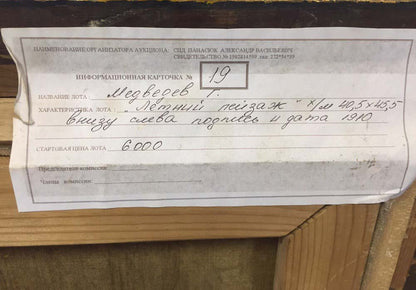 НАИМЕНОВАНИЕ ОРГАНИЗАТОРА АУКЦИОНА: СПД ПАНАСЮК АЛЕКСАНДР ВАСИЛЬЕВИЧ
СВИДЕТЕЛЬСТВО №
ИНФОРМАЦИОННАЯ КАРТОЧКА № 19
НАЗВАНИЕ ЛОТА: Медведев Г.
ХАРАКТЕРИСТИКА ЛОТА: "Летний пейзаж" х/м 40,5х45,5
внизу слева подпись и дата 1910
СТАРТОВАЯ ЦЕНА ЛОТА: 6000
Председатель комиссии
Члены комиссии